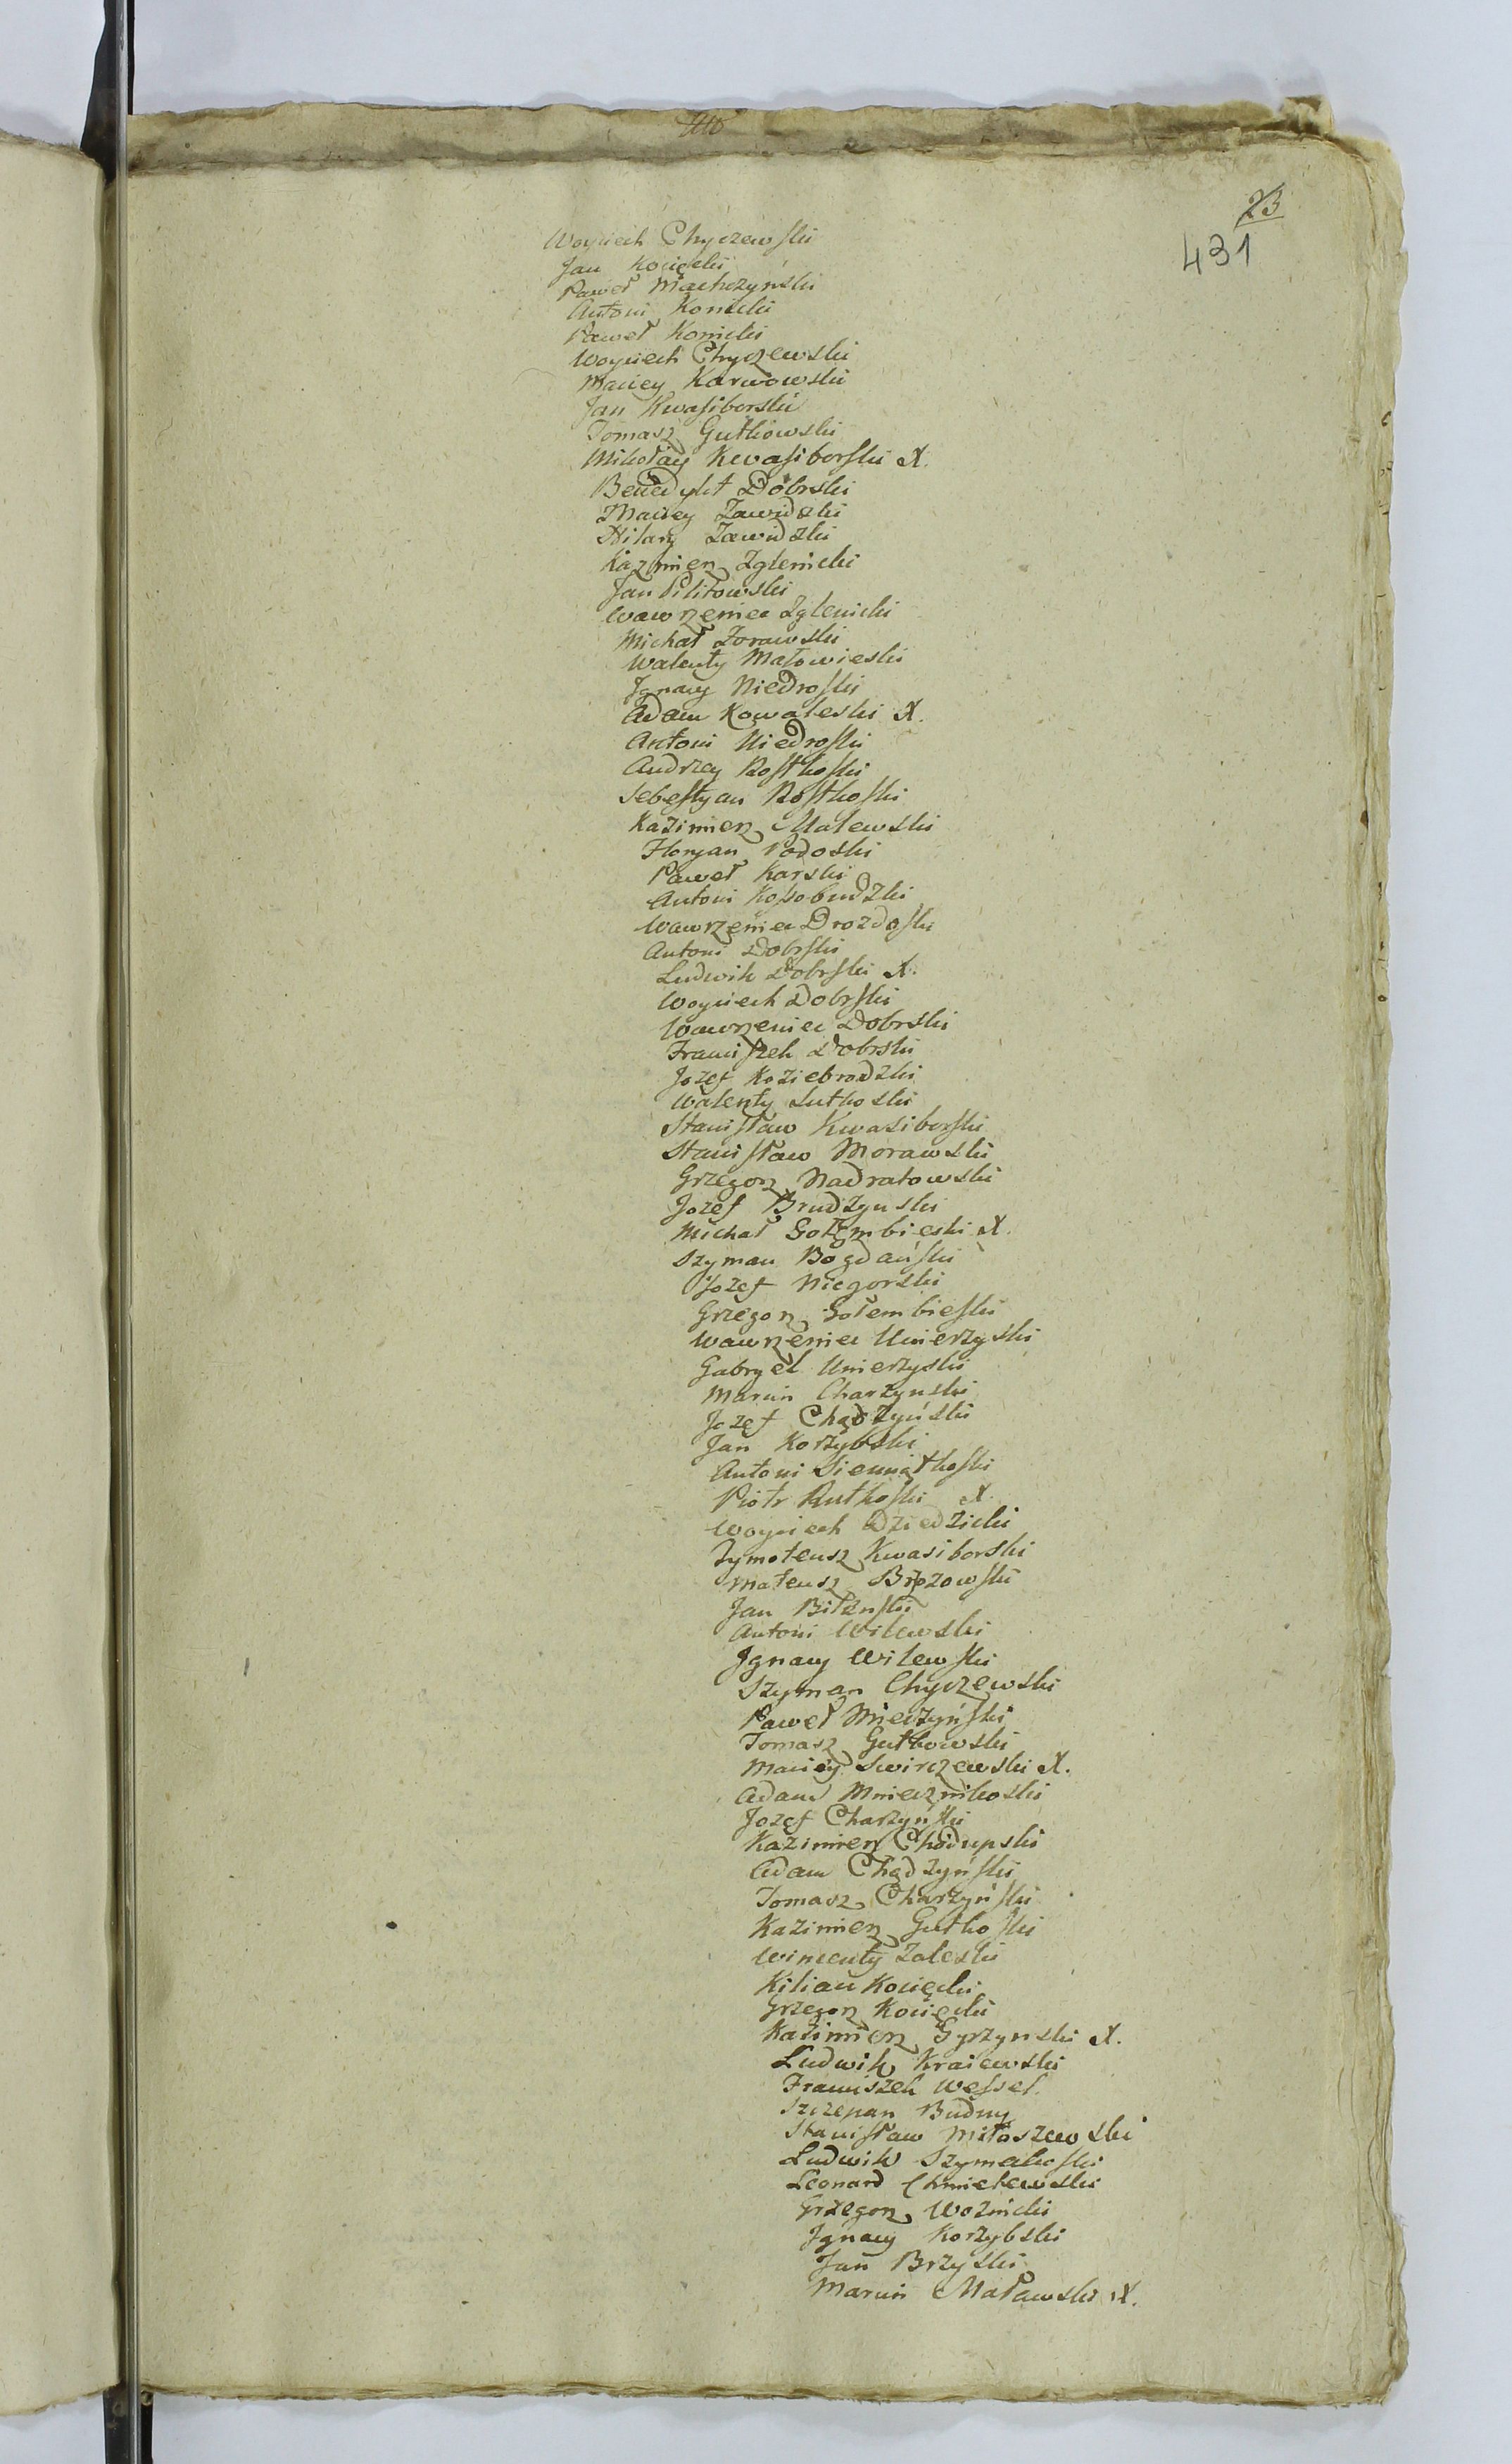 23
431
Woyciech Chyczewski
Jan Kocięcki
Paweł Machczyński
Antoni Konicki
Paweł Konicki
Woyciech Chyczewski
Maciey Karwowski
Jan Kwasiborski
Tomasz Gutkowski
Mikołay Kwasiborski X.
Benedykt Dobrski
Maciey Zawidzki
Hilary Zawidzki
Kazimierz Zglenicki
Jan Pilitowski
Wawrzeniec Zglenicki
Michał Zorawski
Walenty Małowieski
Jgnacy Niedroski
Adam Kowaleski X.
Antoni Niedroski
Andrzey Rostkoski
Sebestyan Rostkoski
Kazimierz Malewski
Floryan Podoski
Paweł Karski
Antoni Kossobudzki
Wawrzeniec Drozdoski
Antoni Dobrski
Ludwik Dobrski X.
Woyciech Dobrski
Wawrzeniec Dobrski
Franciszek Dobrski
Jozef Koziebrodzki
Walenty Lutkoski
Stanisław Kwasiborski
Stanisław Morawski
Grzegorz Nadratowski
Jozef Brudzynski
Michał Gołembieski X.
Szyman Bogdański
Jozef Niegorski
Grzegorz Gołembieski
Wawrzeniec Unierzyski
Gabryel Unierzyski
Marcin Charzynski
Jozef Chądzyński
Jan Korzybski
Antoni Siemiątkoski
Piotr Rutkoski X.
Woyciech Dziedzicki
Tymoteusz Kwasiborski
Mateusz Brzozowski
Jan Bilinski
Antoni Wilewski
Jgnacy Wilewski
Szyman Chyczewski
Paweł Mierzyński
Tomasz Gutkowski
Maciey Swirczewski X.
Adam Mniecznikoski
Jozef Charzyński
Kazimierz Chodupski
Adam Chądzyński
Tomasz Charzyński
Kazimierz Gutkoski
Wincenty Zaleski
Kilian Kocięcki
Grzegorz Kocięcki
Kazimierz Gyrzynski X.
Ludwik Kraiewski
Franciszek Wessel
Szczepan Budny
Stanisław Miłoszewski
Ludwik Szymakoski
Leonard Chmielewski
Grzegorz Woznicki
Jgnacy Korzybski
Jan Brzyski
Marcin Maławski X.